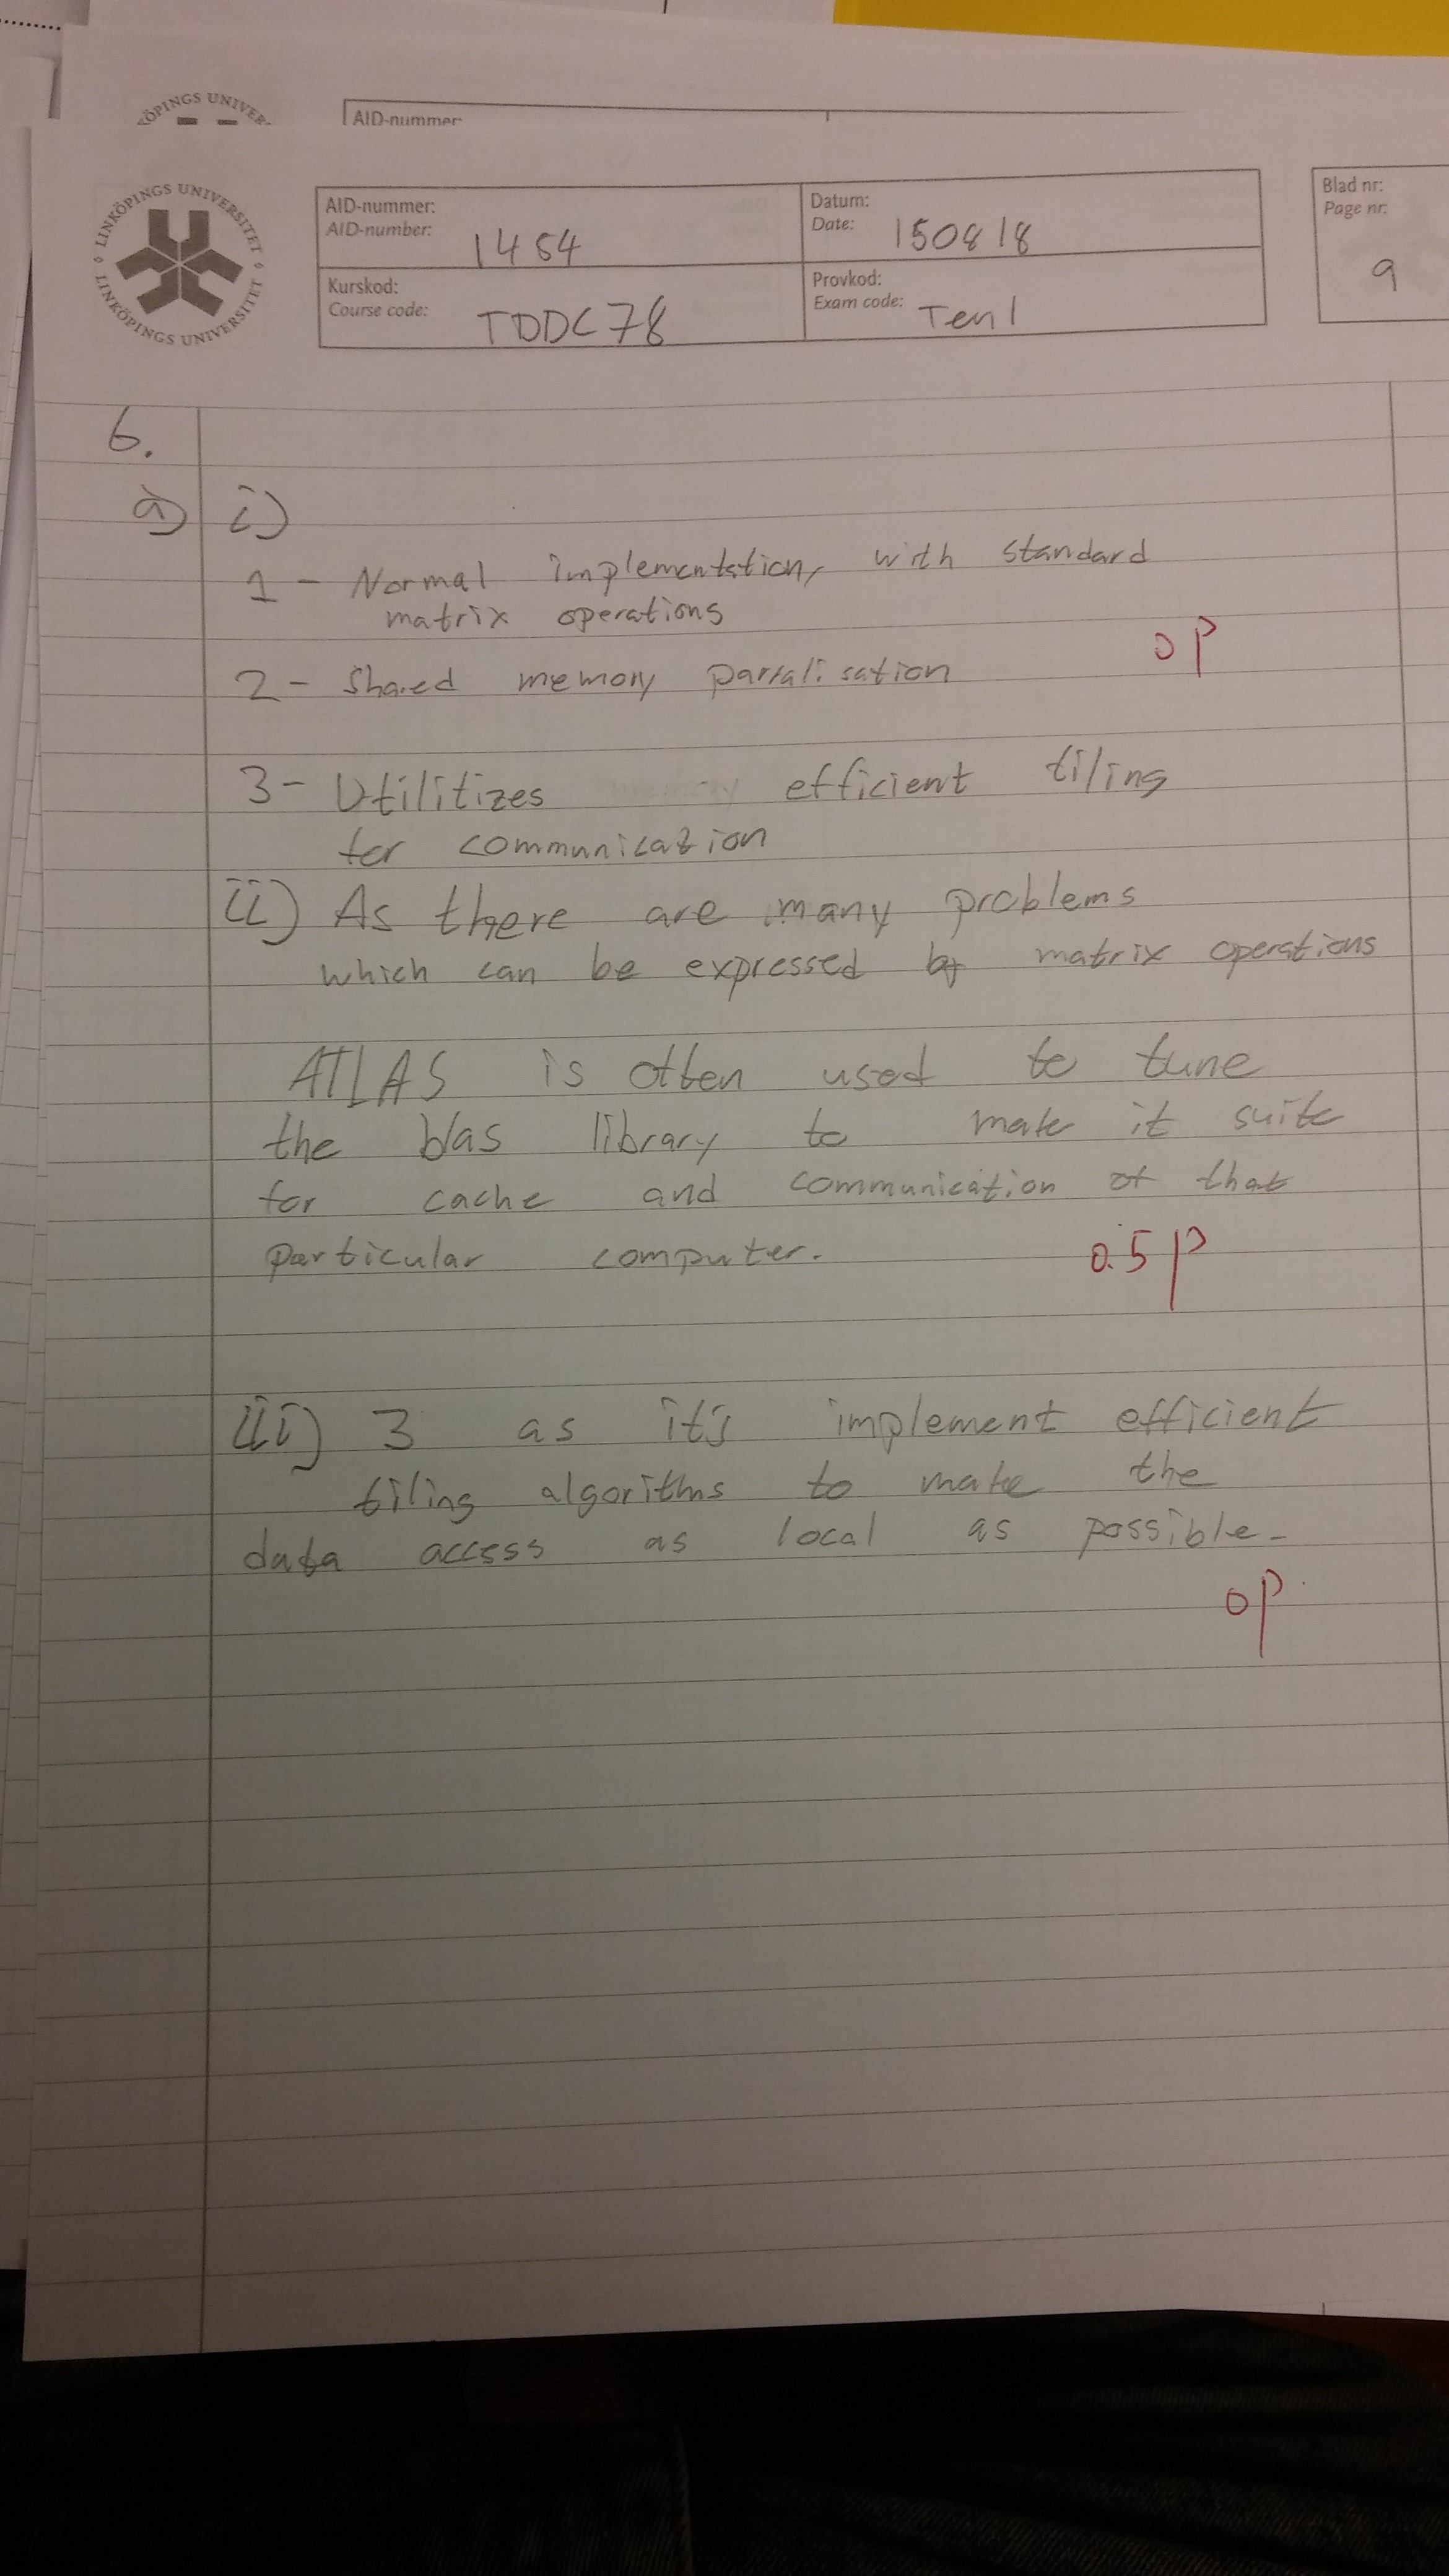 KÖPINGS UNIVER
AID-nummer:
LINKÖPINGS UNIVERSITET
LINKÖPINGS UNIVERSITET
AID-nummer:
AID-number: 1454
Datum:
Date: 150818
Blad nr:
Page nr:
9
Kurskod:
Course code: TDDC78
Provkod:
Exam code: Ten1
6.
a) i)
1 - Normal implementation, with standard
matrix operations
0 p
2 - Shared memory parralisation
3 - Utilitizes efficient tiling
for communication
ii) As there are many problems
which can be expressed by matrix operations
ATLAS is often used to tune
the blas library to make it suite
for cache and communication of that
particular computer.
0.5 p
iii) 3 as it's implement efficient
tiling algorithms to make the
data access as local as possible.
0p